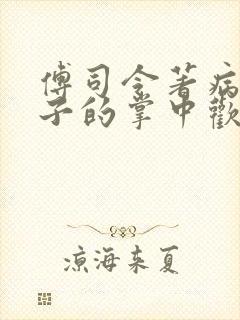 傅司令著病
子的掌中歡
凉海来夏